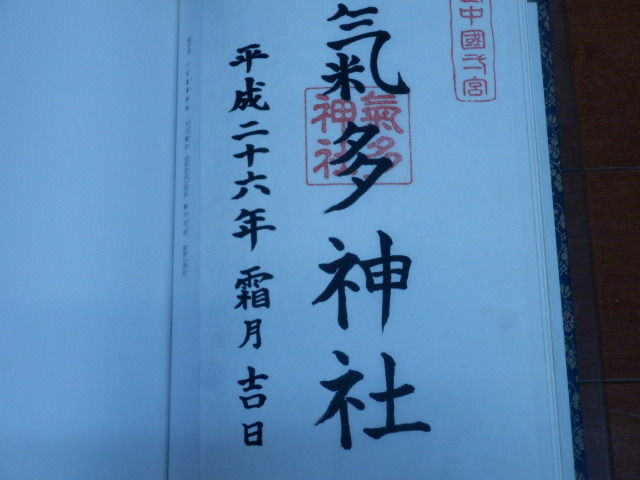 中國一宮
氣多神社
氣多神社
平成二十六年 霜月 吉日